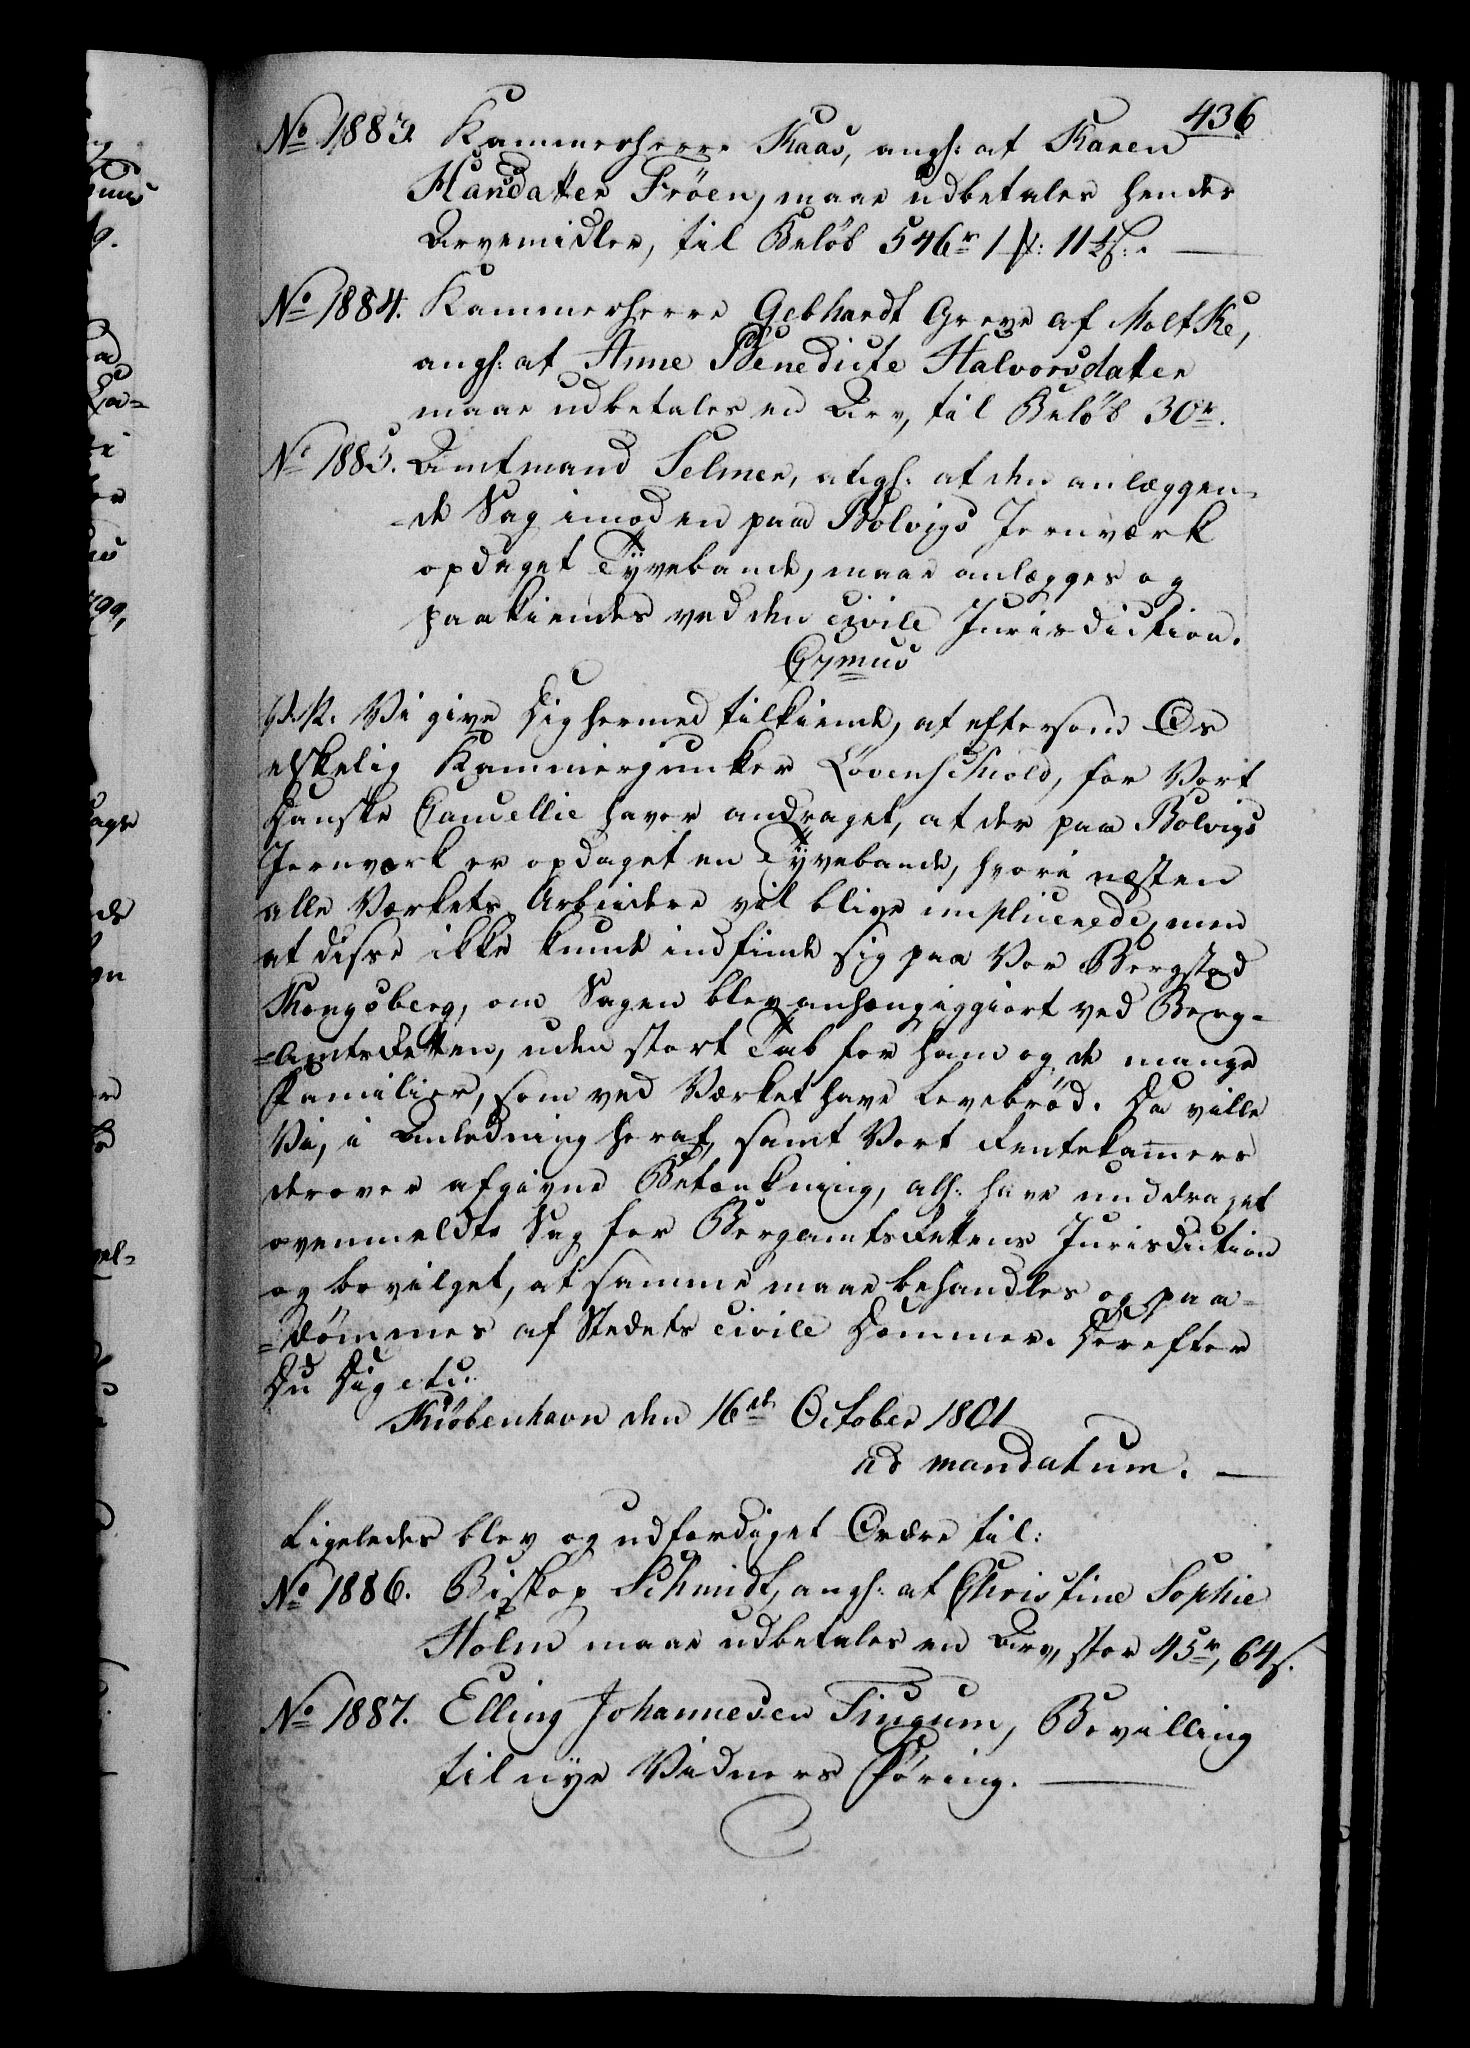 436
No 1883. Kammerherre Kaas, angh: at Karen
Hansdatter Fröen, maae udbetales hendes
Arvemidler, til Beløb 546r 1 #: 11½ s.
No 1884. Kammerherre Gebhardt Greve af Moltke,
angh: at Anne Benedicte Halvorsdatter
maae udbetales en Arv, til Beløb 30r.
No 1885. Amtmand Selmer, angh: at den anlæggen-
de Sag imod en paa Bolvigs Jernværk
opdaget Tÿvebande, maae anlægges og
paakiendes ved den civile Jurisdiction.
Vi give Dig hermed tilkiende, at eftersom Os
elskelig Kammerjunker Løvenschiold, for Vort
Danske Cancellie haver andraget, at der paa Bolvigs
Jernværk er opdaget en Tÿvebande, hvori næsten
alle Værkets Arbeidere vil blive implicerede, men
at disse ikke kunde indfinde sig paa Vor Bergstad
Kongsberg, om Sagen blev anhængiggiort ved Berg-
=AmtsRetten, uden stort Tab for ham og de mange
Familier, som ved Værket have Levebrød. Da ville
Vi, i Anledning heraf, samt Vort Rentekamers
derover afgivne Betænkning, alh: have unddraget
ovenmeldte Sag for BergamtsRettens Jurisdiction
og bevilget, at samme maae behandles og paa-
=dømmes af Stedets civile Dommer. Derefter
Du Dig etc:
Kiøbenhavn den 16de October 1801
ad mandatum.
Ligeledes blev og udfærdiget Ordre til:
No 1886. Biskop Schmidt, angh: at Christine Sophie
Holm maae udbetales en Arv, stor 45r, 64 s.
No 1887. Elling Johannesen Tingum, Bevilling
til nye Vidners Føring.